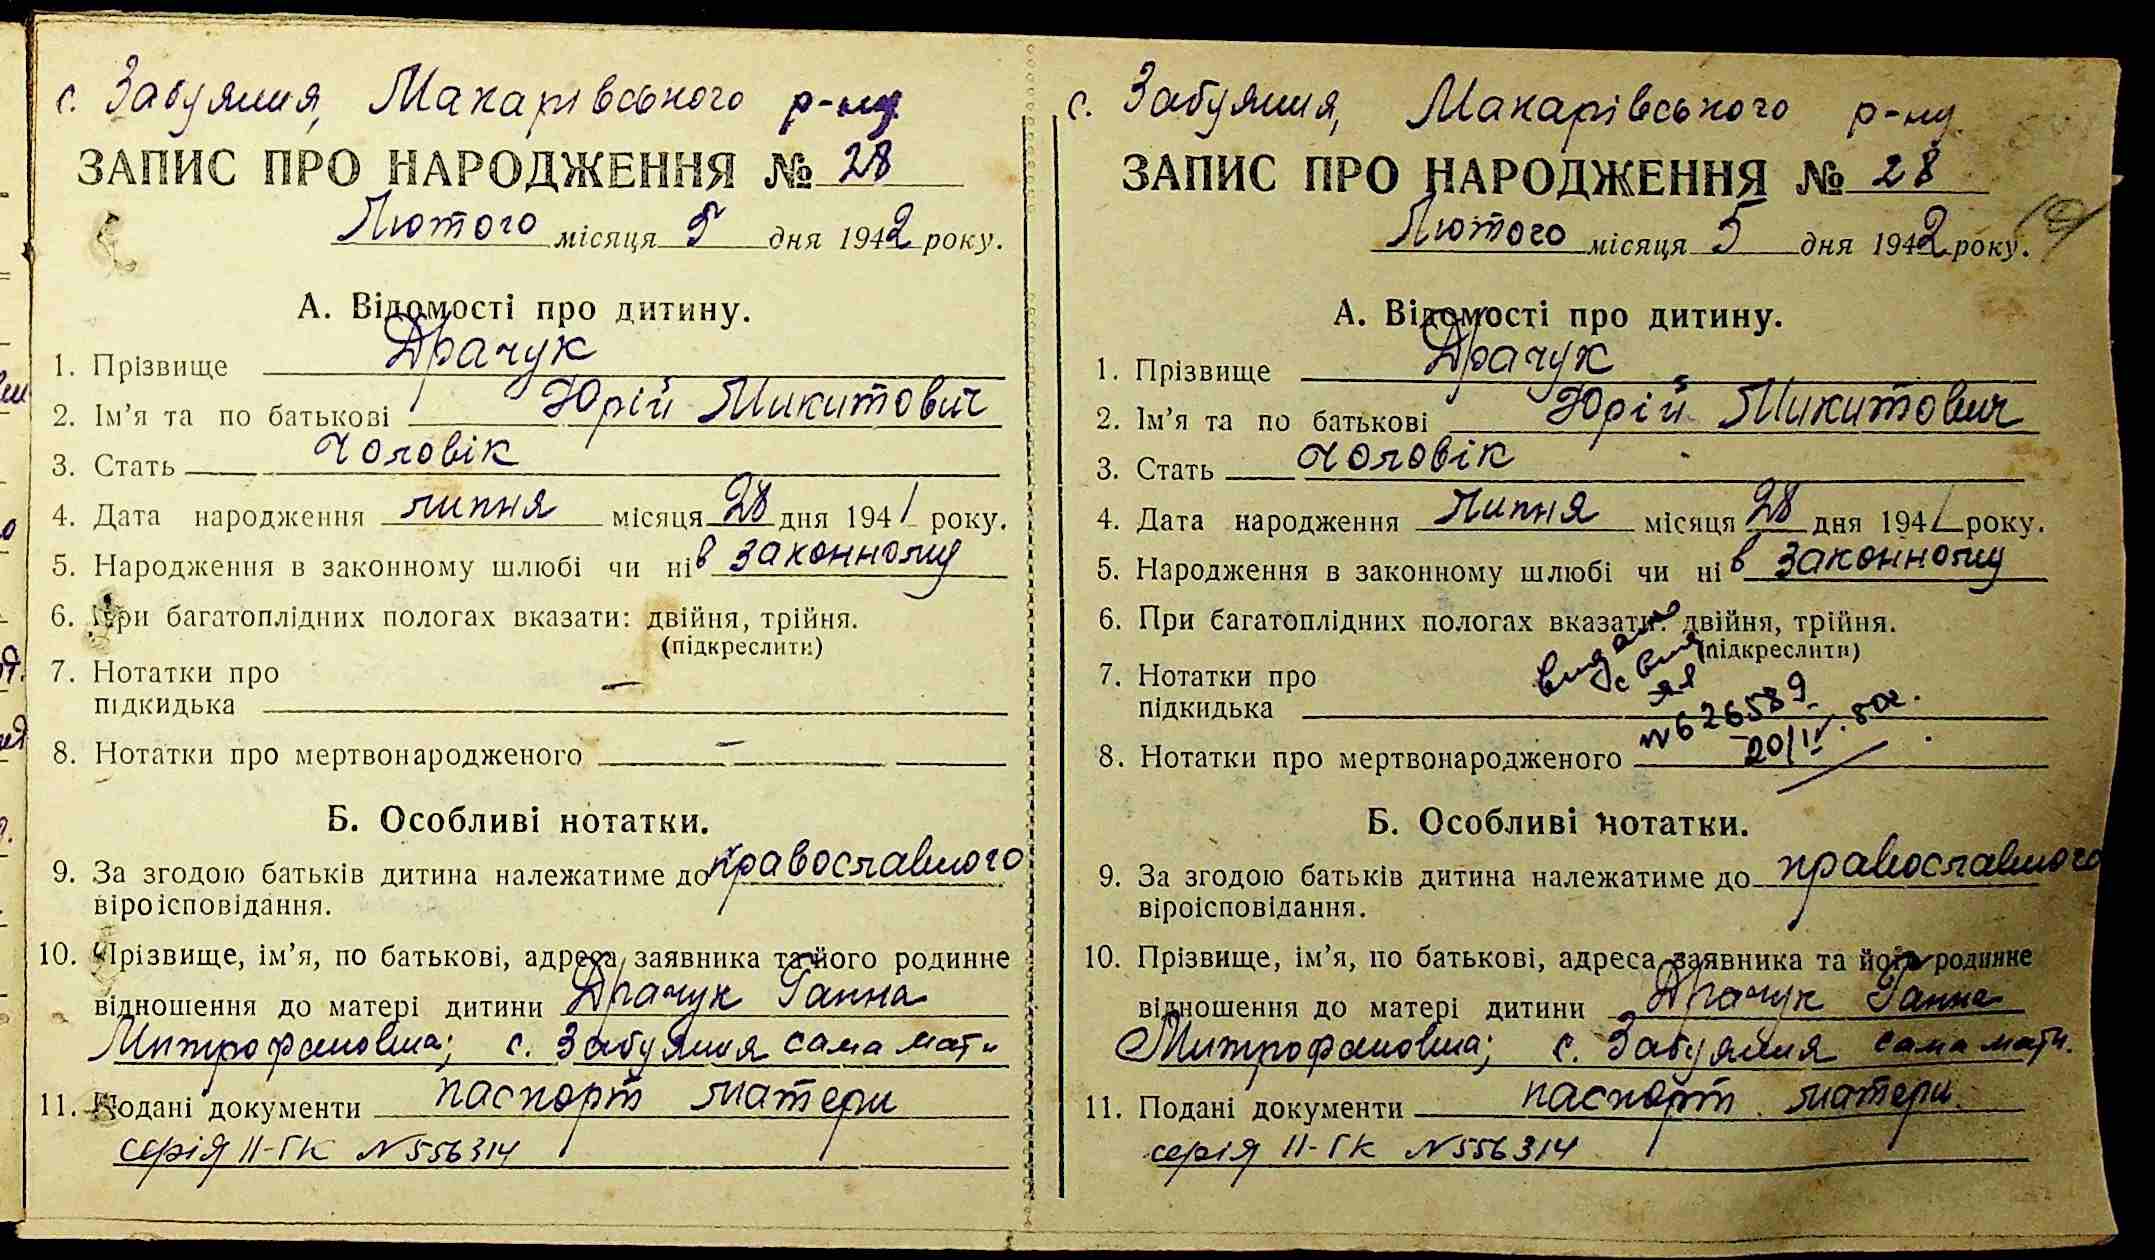 с. Забуяння, Макарівського р-ну
ЗАПИС ПРО НАРОДЖЕННЯ № 28
Лютого місяця 5 дня 1942 року.
А. Відомості про дитину.
1. Прізвище Драчук
2. Ім’я та по батькові Юрій Микитович
3. Стать Чоловік
4. Дата народження липня місяця 28 дня 1941 року.
5. Народження в законному шлюбі чи ні в законному
6. При багатоплідних пологах вказати: двійня, трійня.
(підкреслити)
7. Нотатки про
підкидька —
8. Нотатки про мертвонародженого —
Б. Особливі нотатки.
9. За згодою батьків дитина належатиме до православного
віроісповідання.
10. Прізвище, ім’я, по батькові, адреса заявника та його родинне
відношення до матері дитини Драчук Ганна
Митрофановна; с. Забуяння сама мати
11. Подані документи паспорт матери
серія II-ГК N 556314
с. Забуяння, Макарівського р-ну
ЗАПИС ПРО НАРОДЖЕННЯ № 28
Лютого місяця 5 дня 1942 року.
А. Відомості про дитину.
1. Прізвище Драчук
2. Ім’я та по батькові Юрій Микитович
3. Стать Чоловік
4. Дата народження липня місяця 28 дня 1941 року.
5. Народження в законному шлюбі чи ні в законному
6. При багатоплідних пологах вказати: двійня, трійня.
(підкреслити)
7. Нотатки про
підкидька
N 626589
20/IV.
8. Нотатки про мертвонародженого
Б. Особливі нотатки.
9. За згодою батьків дитина належатиме до православного
віроісповідання.
10. Прізвище, ім’я, по батькові, адреса заявника та його родинне
відношення до матері дитини Драчук Ганна
Митрофановна; с. Забуяння сама мати.
11. Подані документи паспорт матери.
серія II-ГК N 556314